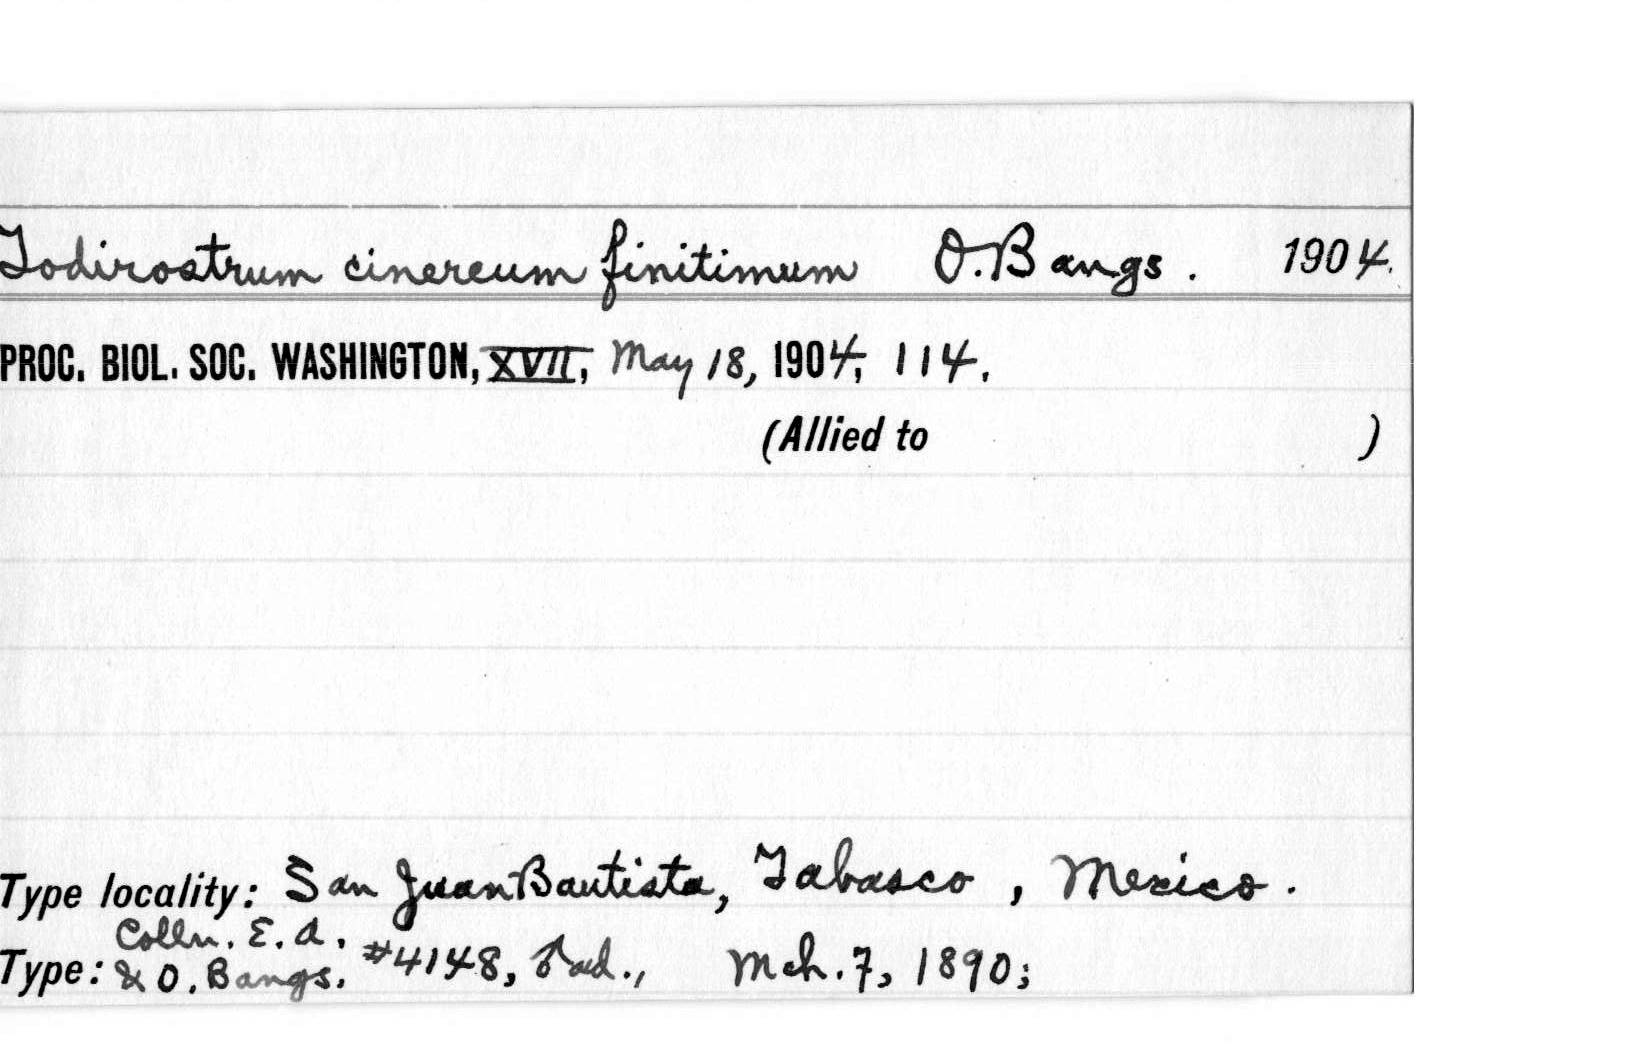 Todirostrum cinereum finitimum O. Bangs. 1904.
PROC. BIOL. SOC. WASHINGTON, XVII, May 18, 1904, 114.
(Allied to )
Type locality: San Juan Bautista, Tabasco, Mexico.
Colln. E. A.
Type: & O. Bangs. #4148, ♂ ad., Mch. 7, 1890;